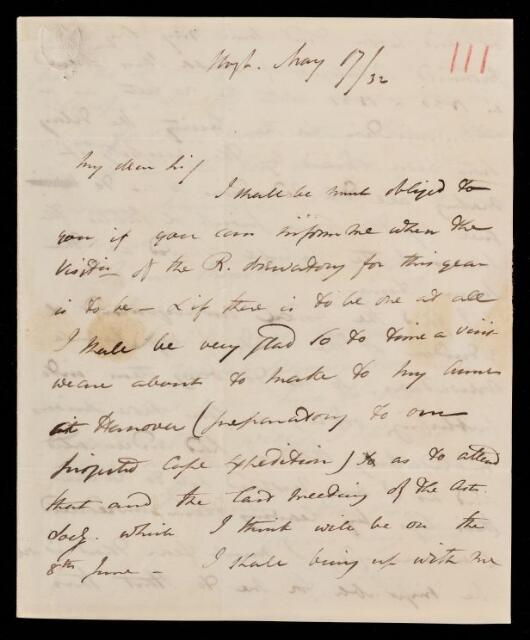 111
May 17/32
My dear Sir/
I shall be much obliged to
you if you can inform me when the
Visitn of the R. Observatory for this year
is to be – & if there is to be one at all
I shall be very glad so to time a visit
we are about to make to my Aunt
at Hanover (preparatory to our
projected Cape Expedition) as to attend
that and the last meeting of the Ast.
Socy. which I think will be on the
8th June – I shall bring up with me